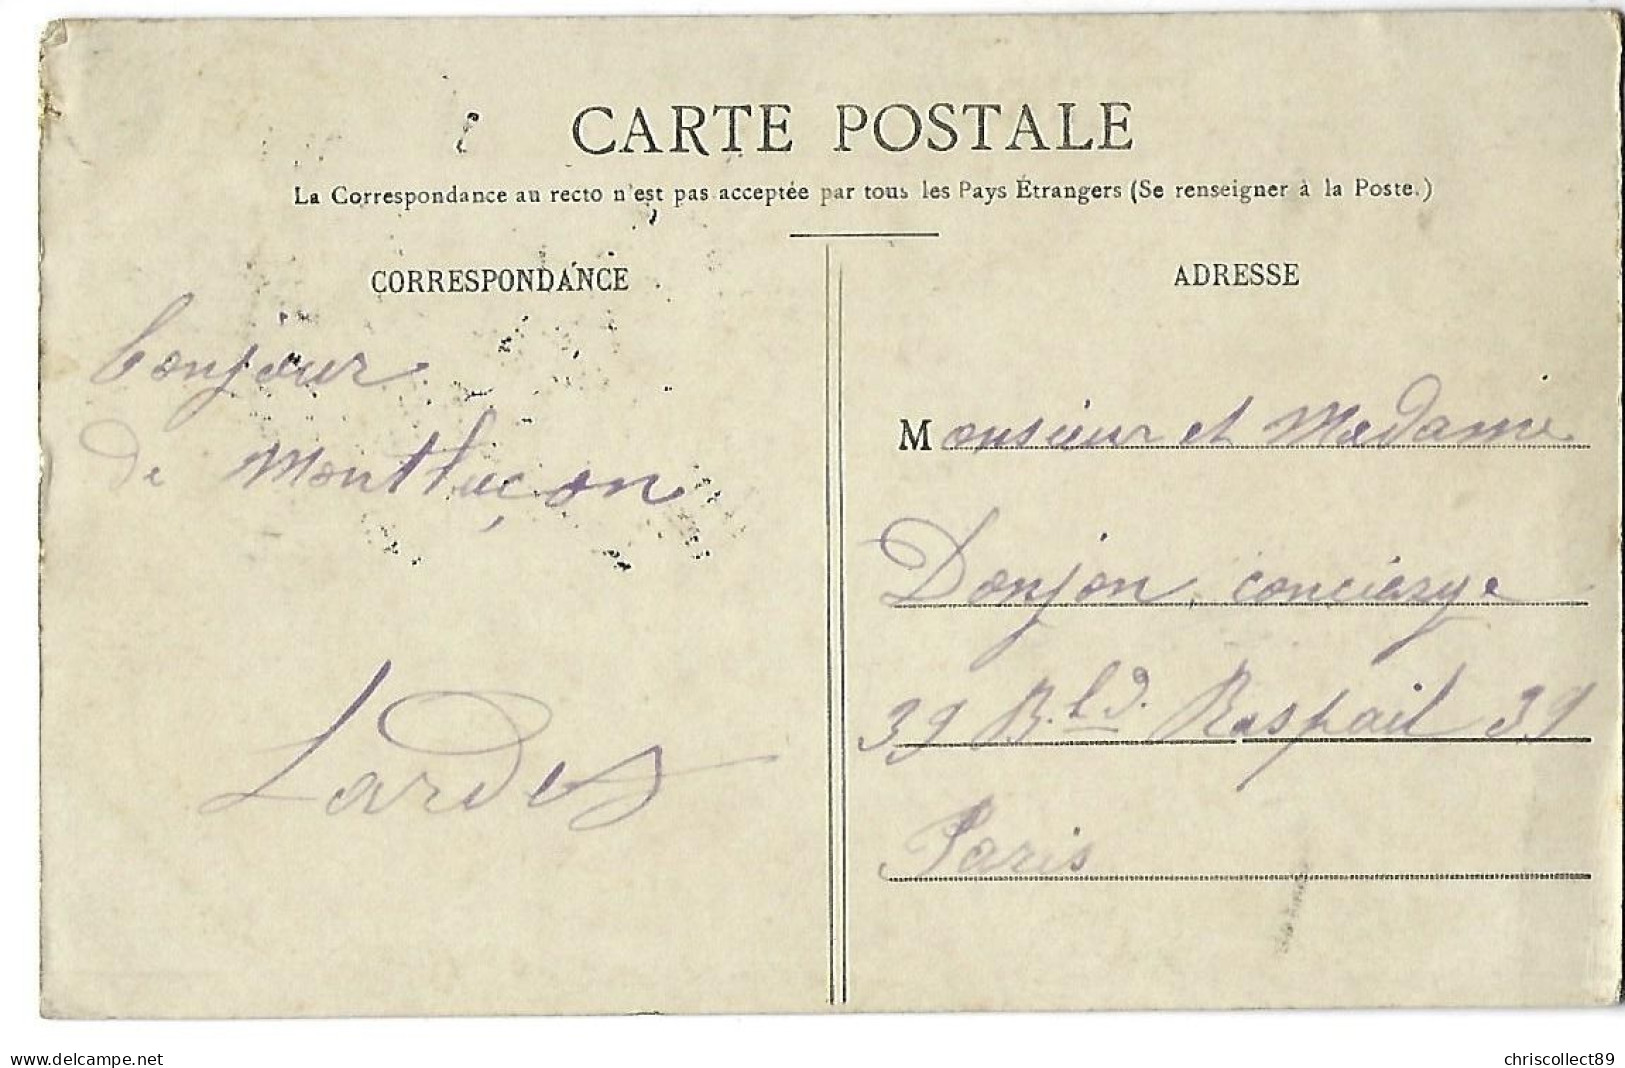 CARTE POSTALE
La Correspondance au recto n'est pas acceptée par tous les Pays Étrangers (Se renseigner à la Poste.)
CORRESPONDANCE
bonjour
de Montluçon
Lardes
ADRESSE
Monsieur et Madame
Donjon, concierge
39 B.ld. Raspail 39
Paris
www.delcampe.net
chriscollect89